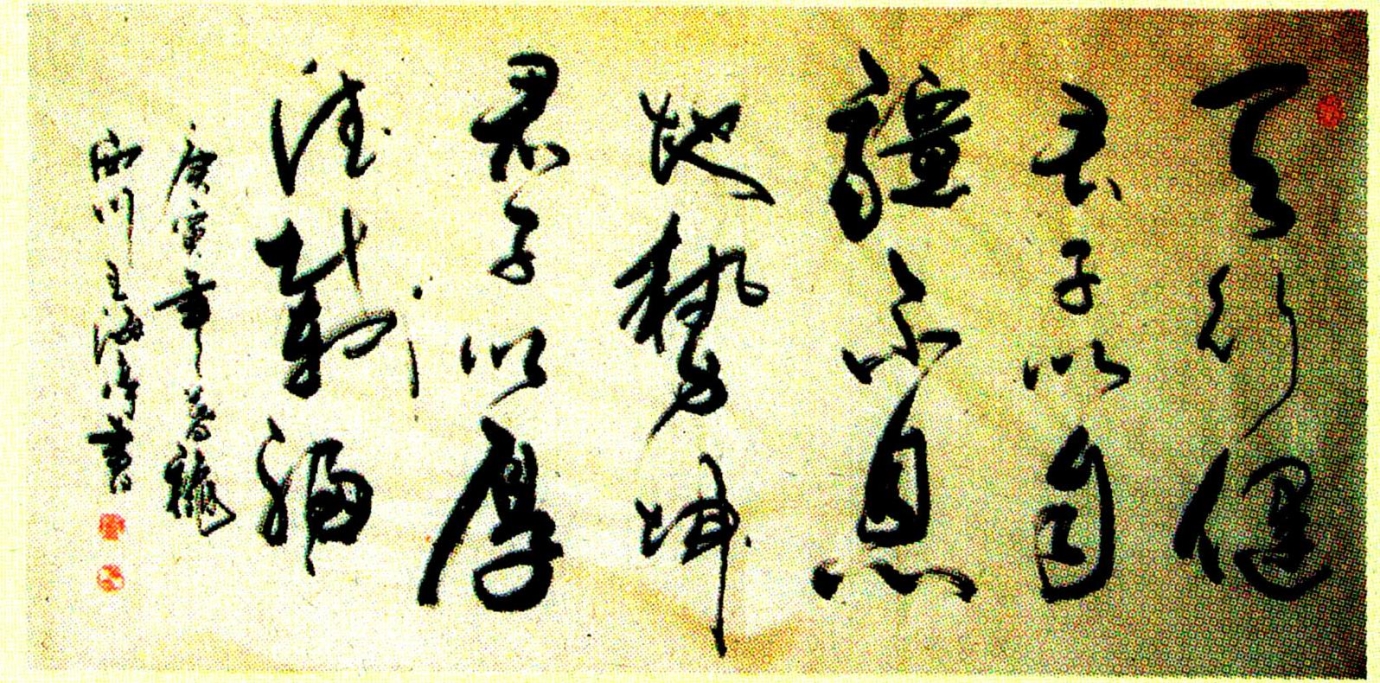 天行健
君子以自
彊不息
地勢坤
君子以厚
德載福
庚寅年
川王海書